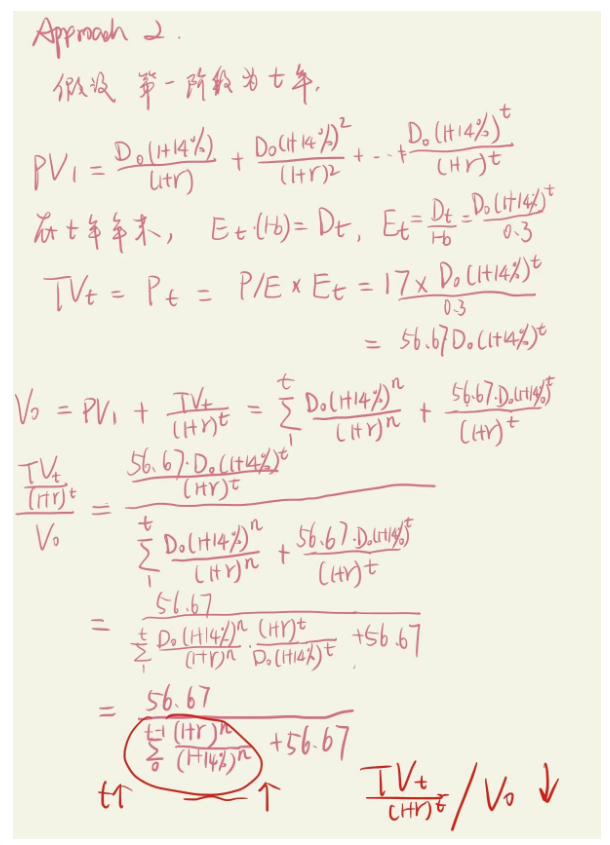 Approach 2.
假设 第一阶段为t年,
PV₁ = D₀(1+14%)/(1+r) + D₀(1+14%)²/(1+r)² + ··+ D₀(1+14%)^t/(1+r)^t
在t年年末, E_t·(1-b) = D_t, E_t = D_t/1-b = D₀(1+14%)^t/0.3
TV_t = P_t = P/E × E_t = 17 × D₀(1+14%)^t/0.3
= 56.67D₀(1+14%)^t
V₀ = PV₁ + TV_t/(1+r)^t = Σ_1^t D₀(1+14%)^n/(1+r)^n + 56.67·D₀(1+14%)^t/(1+r)^t
TV_t/(1+r)^t/V₀ = 56.67·D₀(1+14%)^t/(1+r)^t / Σ_1^t D₀(1+14%)^n/(1+r)^n + 56.67·D₀(1+14%)^t/(1+r)^t
= 56.67 / Σ_1^t D₀(1+14%)^n/(1+r)^n · (1+r)^t/D₀(1+14%)^t +56.67
= 56.67 / Σ_0^t-1 (1+r)^n/(1+14%)^n +56.67
t↑ ↑ TV_t/(1+r)^t / V₀ ↓